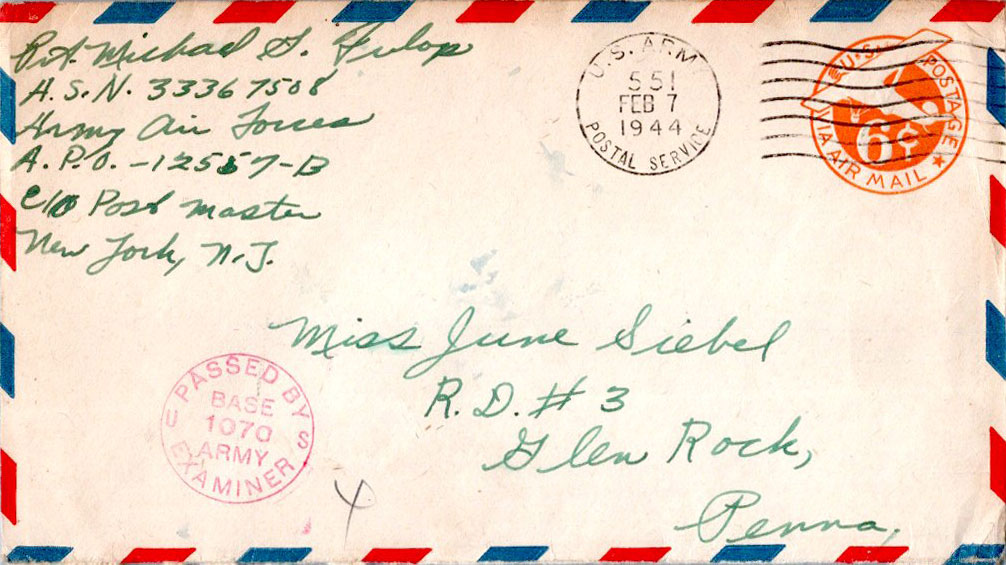 Pvt. Michael S. Fulop
A.S.N. 33367508
Army Air Forces
A.P.O. -12557-B
c/o Post Master
New York, N.Y.
U.S. ARMY
551
FEB 7
1944
POSTAL SERVICE
U.S. POSTAGE
6¢
VIA AIR MAIL
Miss June Siebel
R.D. # 3
Glen Rock,
Penna,
PASSED BY
BASE
1070
ARMY
EXAMINER
U S